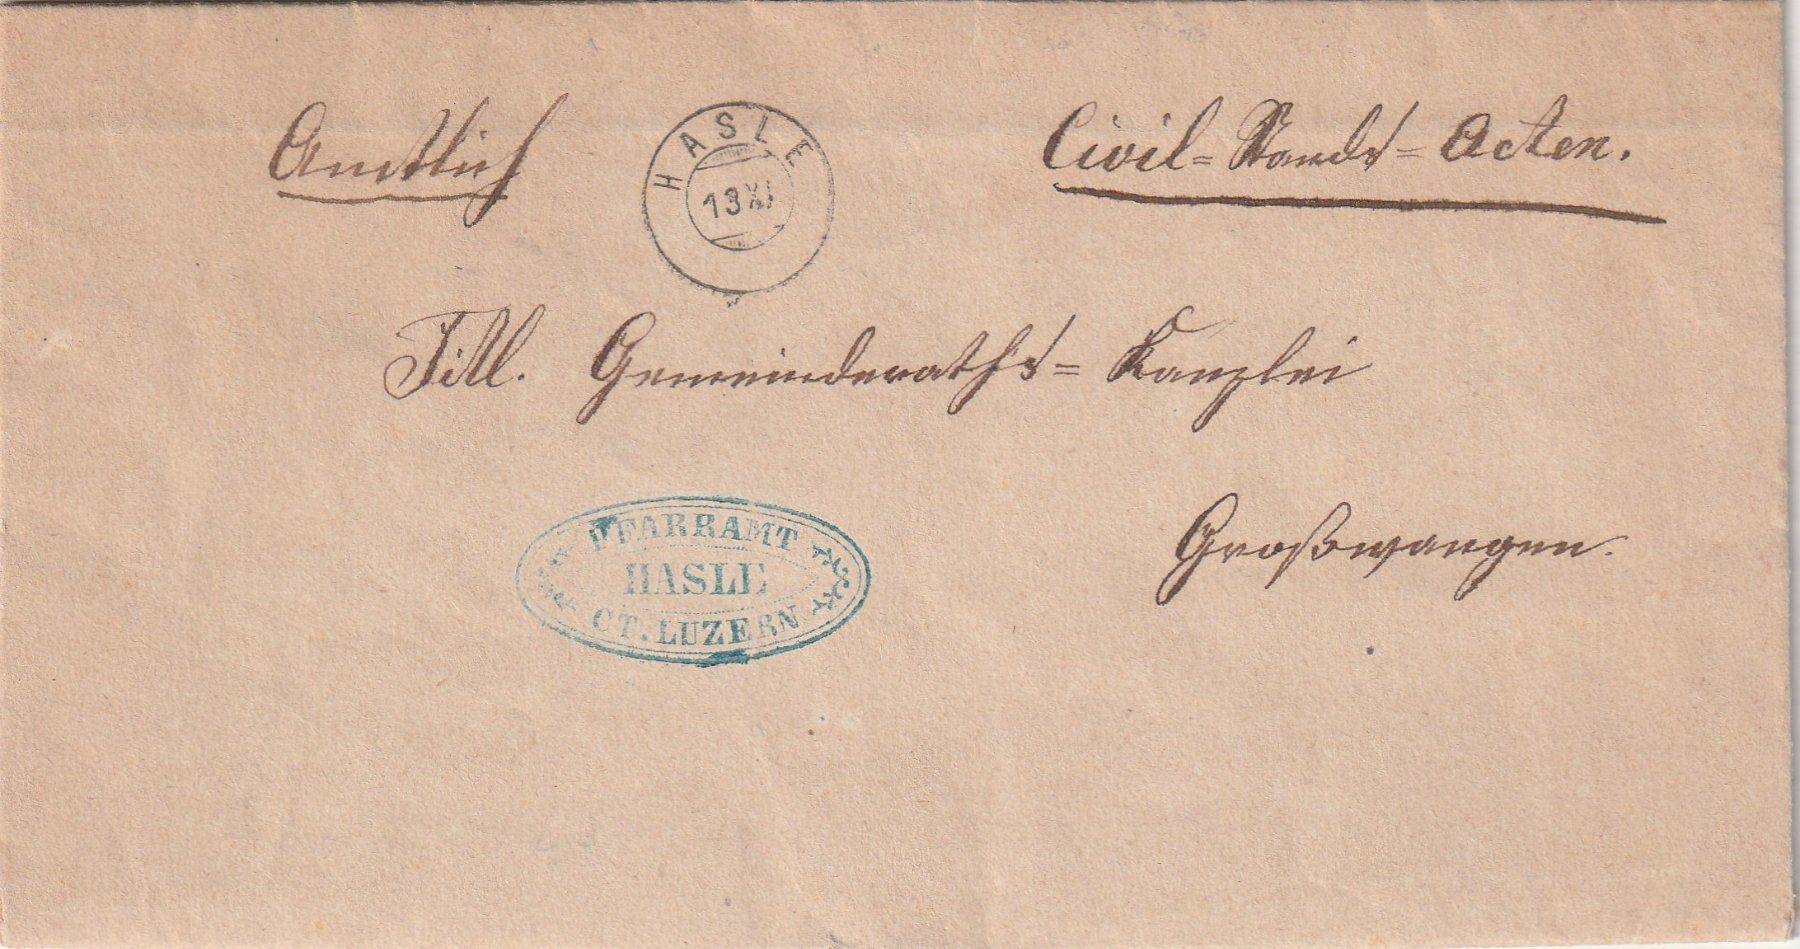 Amtlich
HASLE
13 XI
Civil=Stands=Acten.
Titl. Gemeinderaths=Kanzlei
Großwangen.
PFARRAMT
HASLE
CT. LUZERN